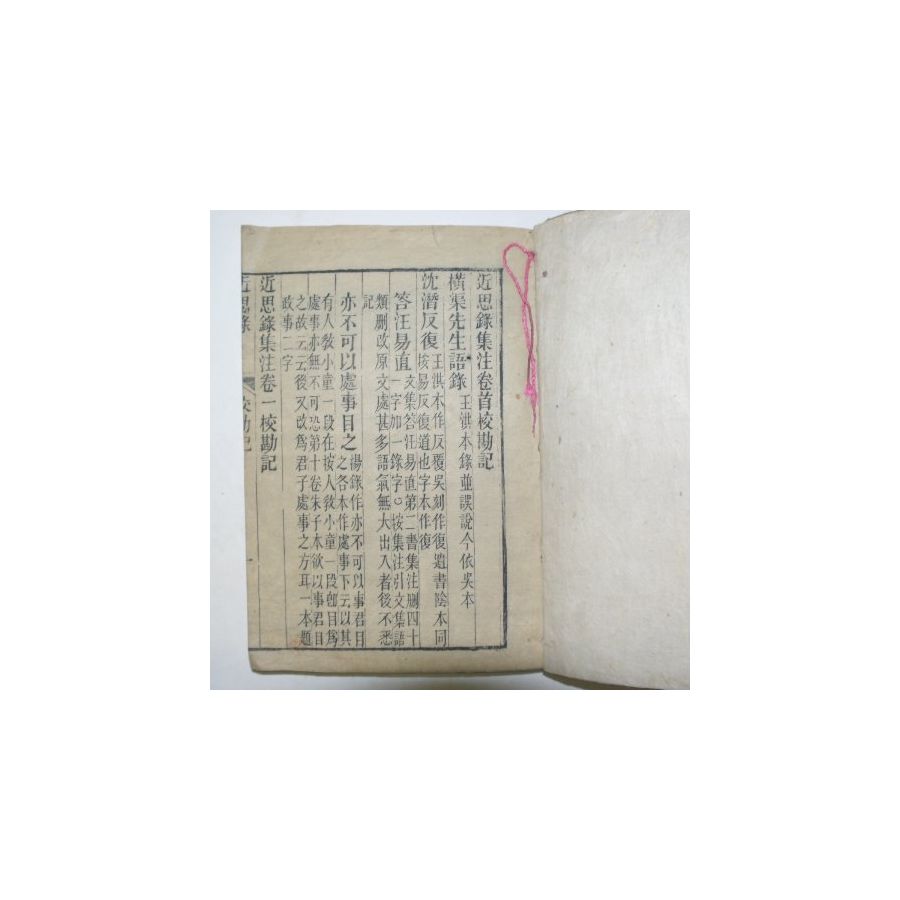 近思錄集注卷首校勘記
橫渠先生語錄 王洪本錄並誤說今依吳本
沈潛反復 王洪本作反覆吳刻作復遺書陰本同
按易反復道也字本作復
答汪易直 文集答汪易直第二書集注刪四十
一字加一錄字○按集注引文集語
類刪改原文處甚多語氣無大出入者後不悉
記
亦不可以處事目之 湯錄作亦不可以事君目
之各本作處事下云以其
有人教小童一段在按人教小童一段卽目爲
處事亦無不可恐第十卷朱子本欲以事君目
之故云云後又改爲君子處事之方耳一本題
政事二字
近思錄集注卷一校勘記
近思錄 校勘記 一